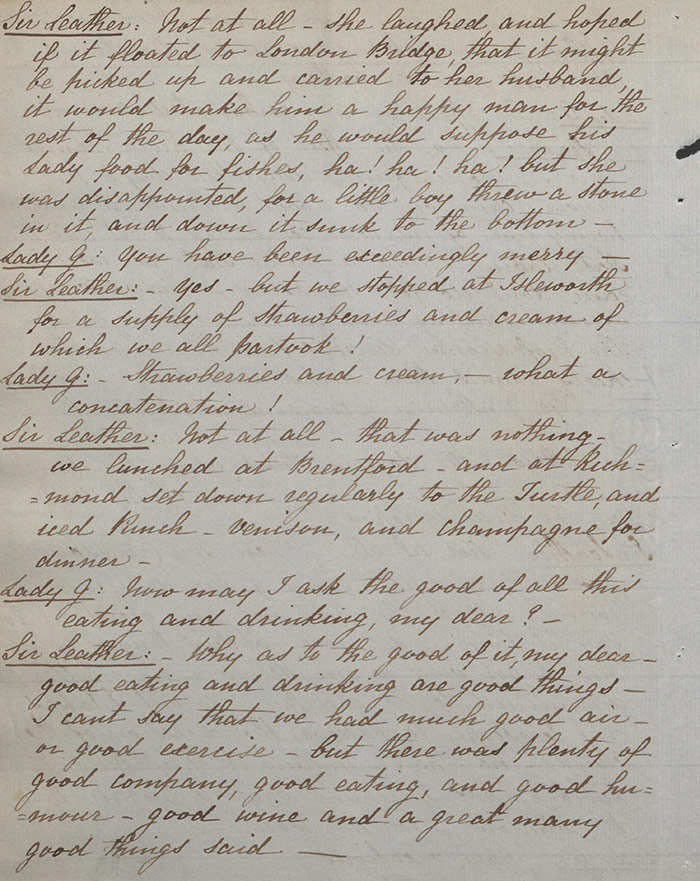 Sir Leather: Not at all – she laughed and hoped
if it floated to London Bridge, that it might
be picked up and carried to her husband,
it would make him a happy man for the
rest of the day, as he would suppose his
Lady food for fishes, ha! ha! ha! but she
was disappointed, for a little boy threw a stone
in it, and down it sunk to the bottom –
Lady G: You have been exceedingly merry –
Sir Leather: – Yes – but we stopped at Isleworth
for a supply of strawberries and cream of
which we all partook!
Lady G: – Strawberries and cream, – what a
concatenation!
Sir Leather: Not at all – that was nothing –
we lunched at Brentford – and at Rich=
=mond set down regularly to the Turtle, and
iced Punch – venison, and champagne for
dinner –
Lady G: Now may I ask the good of all this
eating and drinking, my dear? –
Sir Leather: – Why as to the good of it, my dear –
good eating and drinking are good things –
I cant say that we had much good air –
or good exercise – but there was plenty of
good company, good eating, and good hu=
=mour – good wine and a great many
good things said —